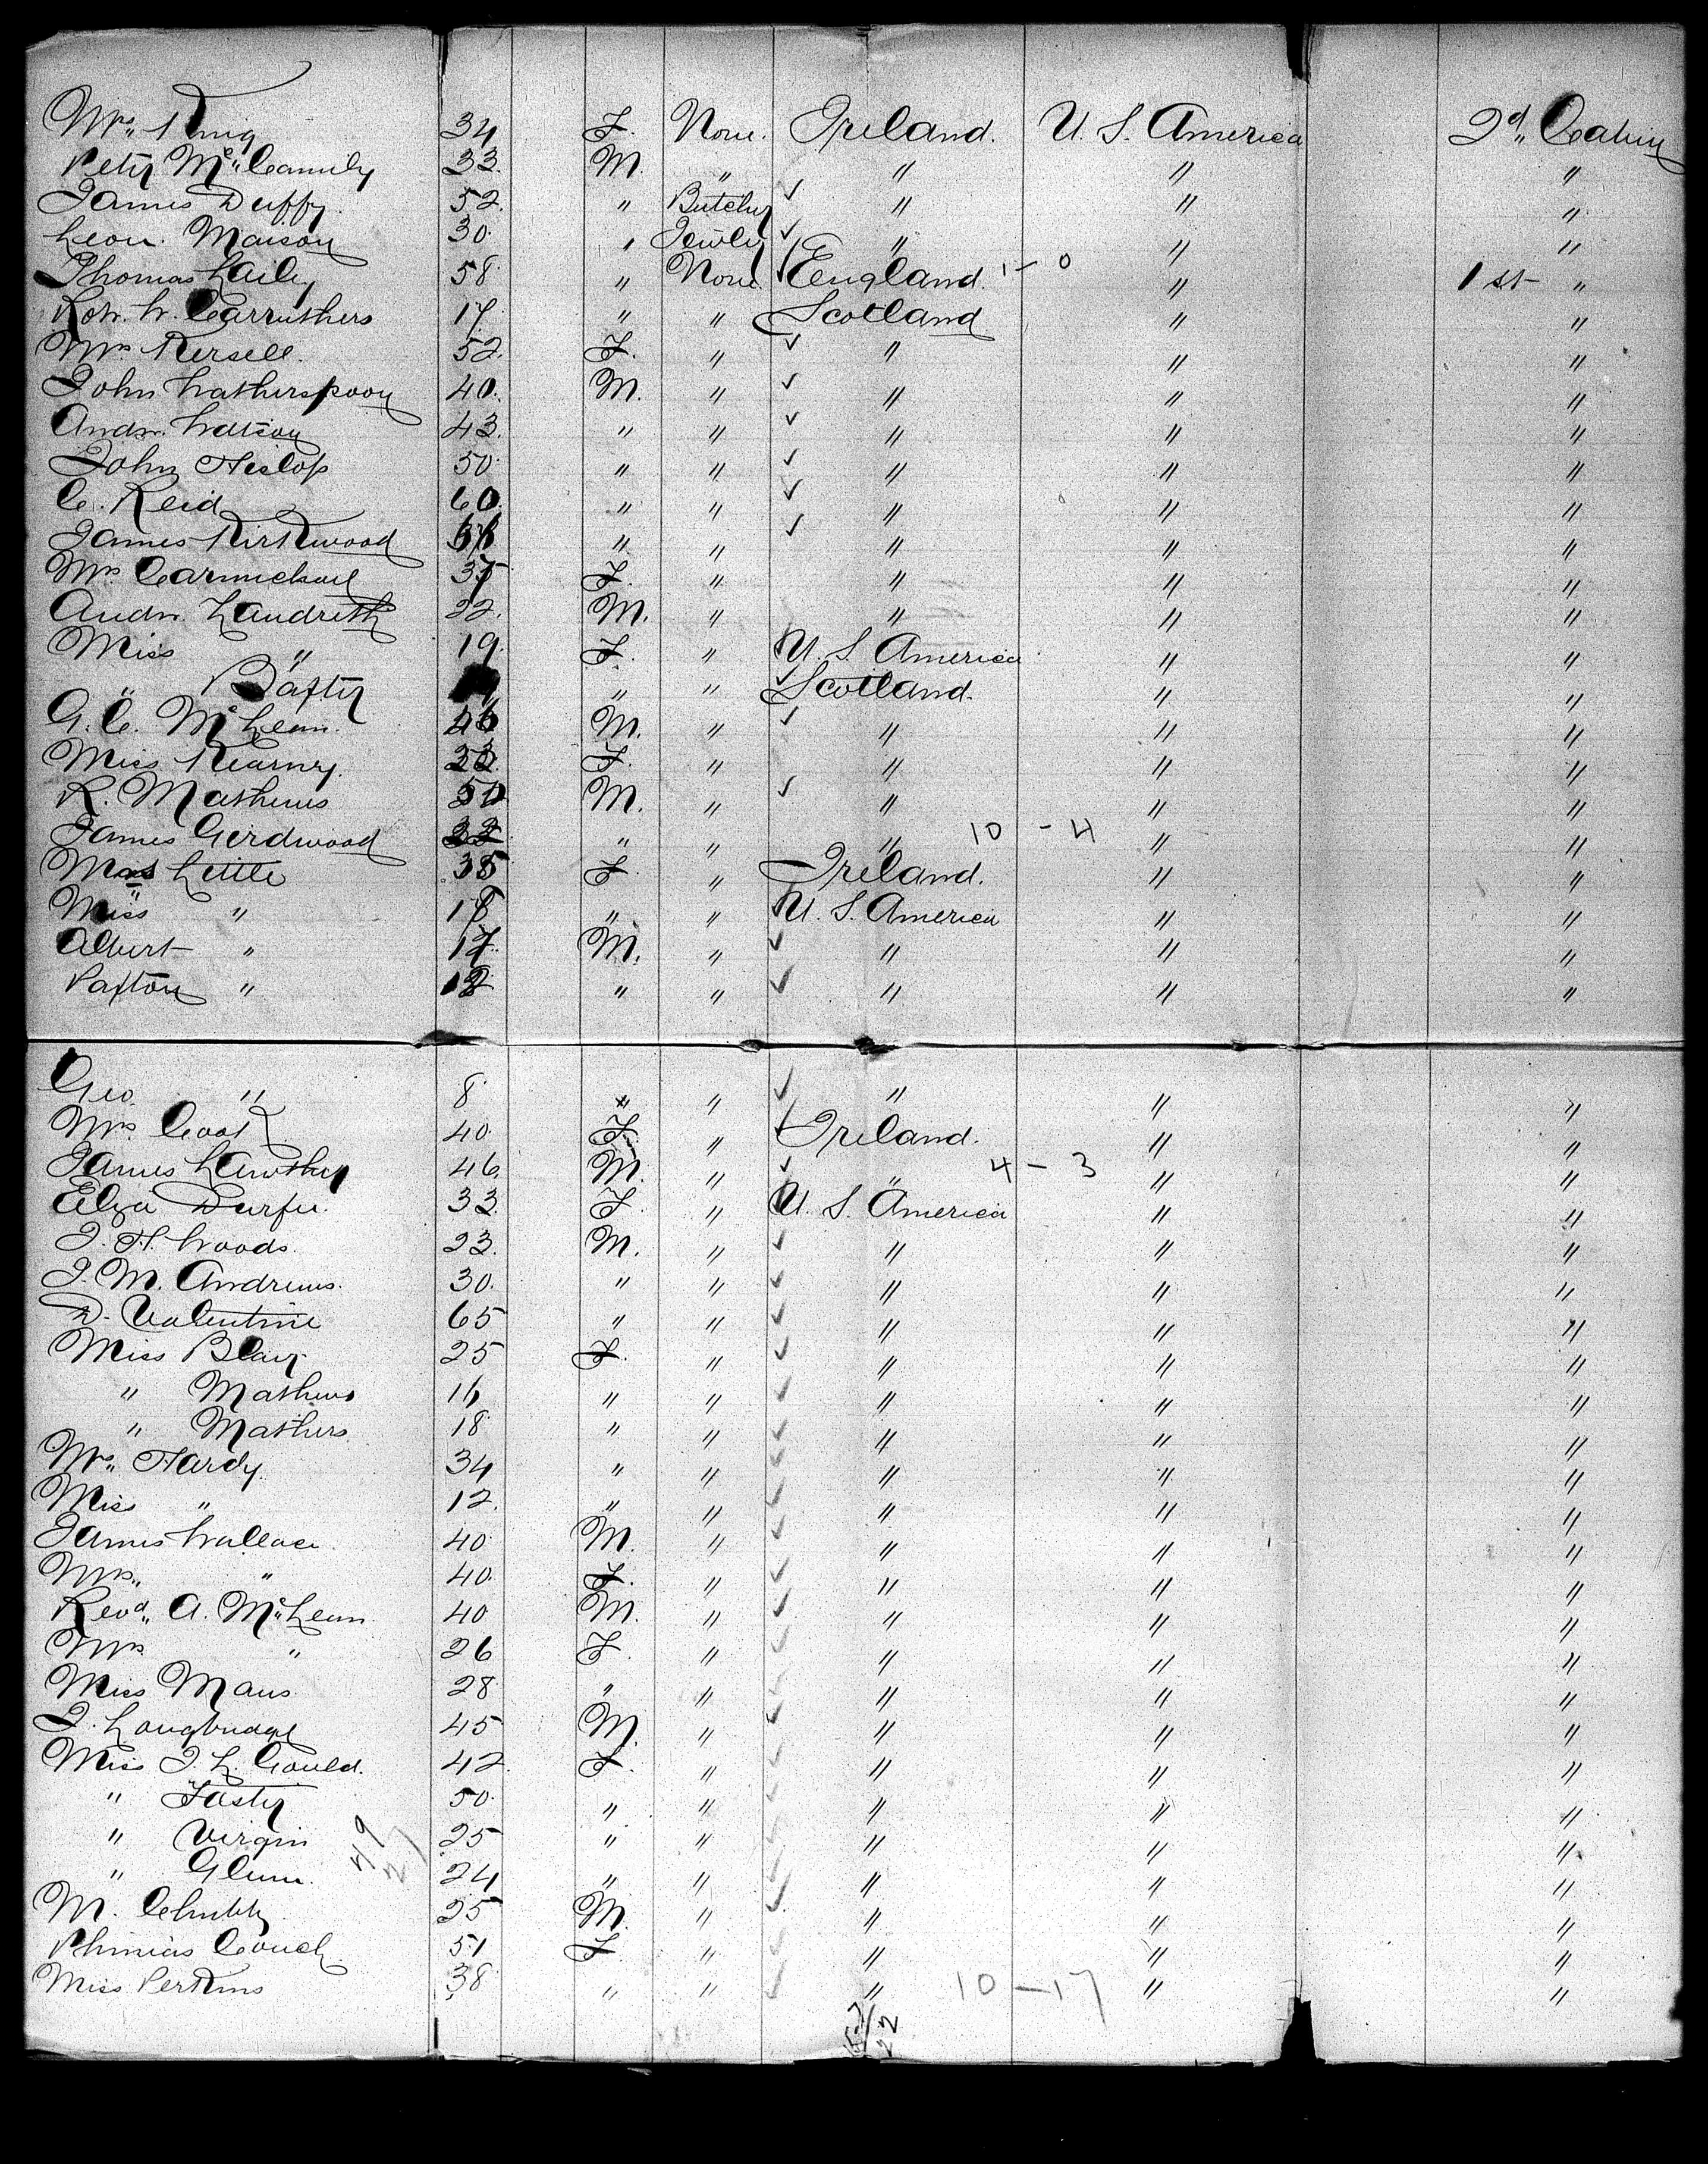 Mrs. King 34 F. None. Ireland. U. S. America 2d,, Cabin
Peter Mc,, Camily 33. M. " " " "
James Duffy. 52. " Butcher " " "
Leon. Maison 30. " Jewler " " "
Thomas Laily 58 " None. England. 1 - 0 " 1 st "
Robt. W. Carruthers 17. " " Scotland " "
Mrs. Kersell. 52. F. " " " "
John Watherspoon 40. M. " " " "
Andw. Watson 43. " " " " "
John Heslop 50. " " " " "
C. Reid 60. " " " " "
James Kirkwood " " " " "
Mrs. Carmichael 35 F. " " " "
Andw. Landreth 22. M. " " " "
Miss " 19. F. " U. S. America " "
" Baxter " " Scotland. " "
G. C. McLean. 46 M. " " " "
Miss Kearney. F. " " " "
R. Mathews 50 M. " " " "
James Girdwood 22 " " " 10 - 4 " "
Mrs Little 38 F. " Ireland. " "
Miss " 18 " " U. S. America " "
Albert " 17. M. " " " "
Paxton " 12 " " " " "
Geo " 8. " " " " "
Mrs. Cook 40. F. " Ireland. " "
James Lawther 46. M. " " 4 - 3 " "
Eliza Durfee. 33. F. " U. S. America " "
J. H. Woods. 23. M. " " " "
J. M. Andrews. 30. " " " " "
D. Valentine 65 " " " " "
Miss Blair 25 F. " " " "
" Mathews 16 " " " " "
" Mathers. 18 " " " " "
Mrs. Hardy. 34 " " " " "
Miss " 12. " " " " "
James Wallace. 40. M. " " " "
Mrs. " 40. F. " " " "
Revd,, A. Mc,, Lean. 40 M. " " " "
Mrs. " 26 F. " " " "
Miss Maus 28 " " " " "
J. Longbridge 45 M. " " " "
Miss J. L. Gould. 42. F. " " " "
" Foster 50. " " " " "
" Virgin 25 " " " " "
" Glenn. 24 " " " " "
M. Chubb. 25 M. " " " "
Phineas Couch. 51 F. " " " "
Miss Perkins 38 " " " 10 - 17 " "